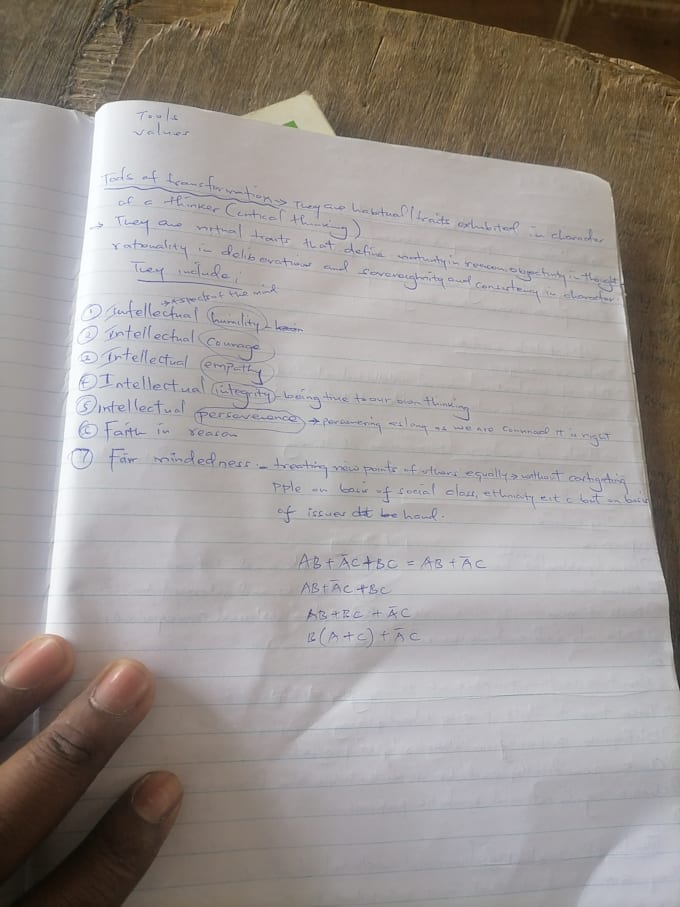 Tools
values
Tools of transformation → They are habitual/traits exhibited in character
of a thinker (critical thinking)
→ They are virtual traits that define maturity in reason, objectivity in thought
rationality in deliberations and sovereignity and consistency in character.
They include;
→ aspects of the mind
① intellectual humility -
② intellectual courage
③ intellectual empathy
④ Intellectual integrity - being true to our own thinking
⑤ intellectual perseverence → persevering as long as we are convinced it is right
⑥ Faith in reason
⑦ Fair mindedness - treating view points of others equally → without
pple on basis of social class, ethnicity e.t.c but on basis
of issues at hand.
AB + A̅C + BC = AB + A̅C
AB + A̅C + BC
AB + BC + A̅C
B(A+C) + A̅C